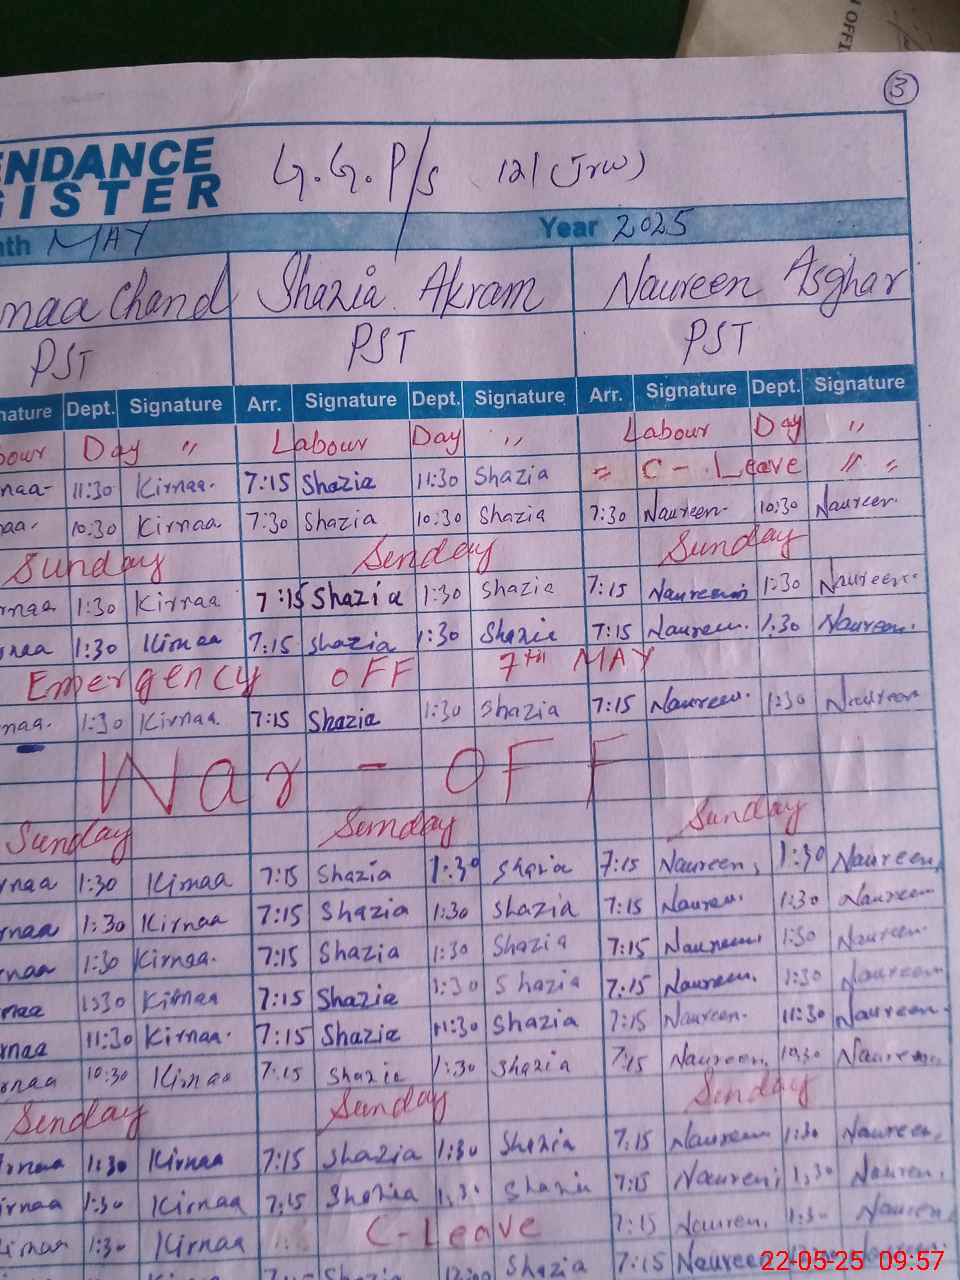 3
ENDANCE G.G.P/S 121 (Jrw)
ISTER
nth MAY Year 2025
maa Chand Shazia Akram Naureen Asghar
PST PST PST
nature Dept. Signature Arr. Signature Dept. Signature Arr. Signature Dept. Signature
bour Day " Labour Day " Labour Day "
naa- 11:30 Kirnaa. 7:15 Shazia 11:30 Shazia = C - Leave " =
naa. 10:30 Kirnaa 7:30 Shazia 10:30 Shazia 7:30 Naureen 10:30 Naureen
Sunday Sunday Sunday
rnaa 1:30 Kirnaa 7:15 Shazia 1:30 Shazia 7:15 Naureen 1:30 Naureen
rnaa 1:30 Kirnaa 7:15 Shazia 1:30 Shazia 7:15 Naureen. 1:30 Naureen.
Emergency OFF 7th MAY
naa. 1:30 Kirnaa. 7:15 Shazia 1:30 Shazia 7:15 Naureen. 1:30 Naureen
War - OFF
Sunday Sunday Sunday
rnaa 1:30 Kirnaa 7:15 Shazia 1:30 Shazia 7:15 Naureen, 1:30 Naureen,
rnaa 1:30 Kirnaa 7:15 Shazia 1:30 Shazia 7:15 Naureen. 1:30 Naureen
rnaa 1:30 Kirnaa. 7:15 Shazia 1:30 Shazia 7:15 Naureen 1:30 Naureen
maa 1:30 Kirnaa 7:15 Shazia 1:30 Shazia 7:15 Naureen. 1:30 Naureen
rnaa 11:30 Kirnaa. 7:15 Shazia 11:30 Shazia 7:15 Naureen. 11:30 Naureen.
rnaa 10:30 Kirnaa 7:15 Shazia 1:30 Shazia 7:15 Naureen. 10:30 Naureen
Sunday Sunday Sunday
irnaa 1:30 Kirnaa 7:15 Shazia 1:30 Shazia 7:15 Naureen 1:30 Naureen,
irnaa 1:30 Kirnaa 7:15 Shazia 1:30 Shazia 7:15 Naureen, 1:30 Naureen,
irnaa 1:30 Kirnaa C-Leave 7:15 Naureen. 1:30 Naureen
Shazia Shazia 7:15 Naureen
22-05-25 09:57